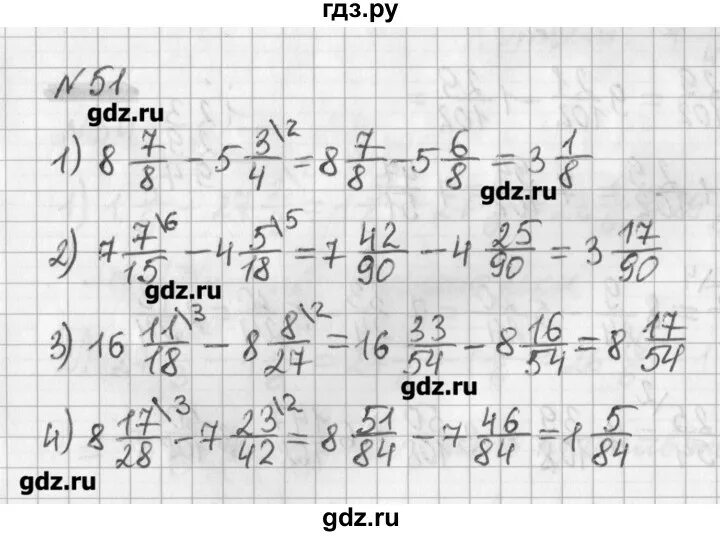 гдз.ру
№ 51
gdz.ru
1) 8 7/8 - 5 3/4 \2 = 8 7/8 - 5 6/8 = 3 1/8
gdz.ru
2) 7 7/15 \6 - 4 5/18 \5 = 7 42/90 - 4 25/90 = 3 17/90
gdz.ru
3) 16 11/18 \3 - 8 8/27 \2 = 16 33/54 - 8 16/54 = 8 17/54
gdz.ru
4) 8 17/28 \3 - 7 23/42 \2 = 8 51/84 - 7 46/84 = 1 5/84
gdz.ru
gdz.ru